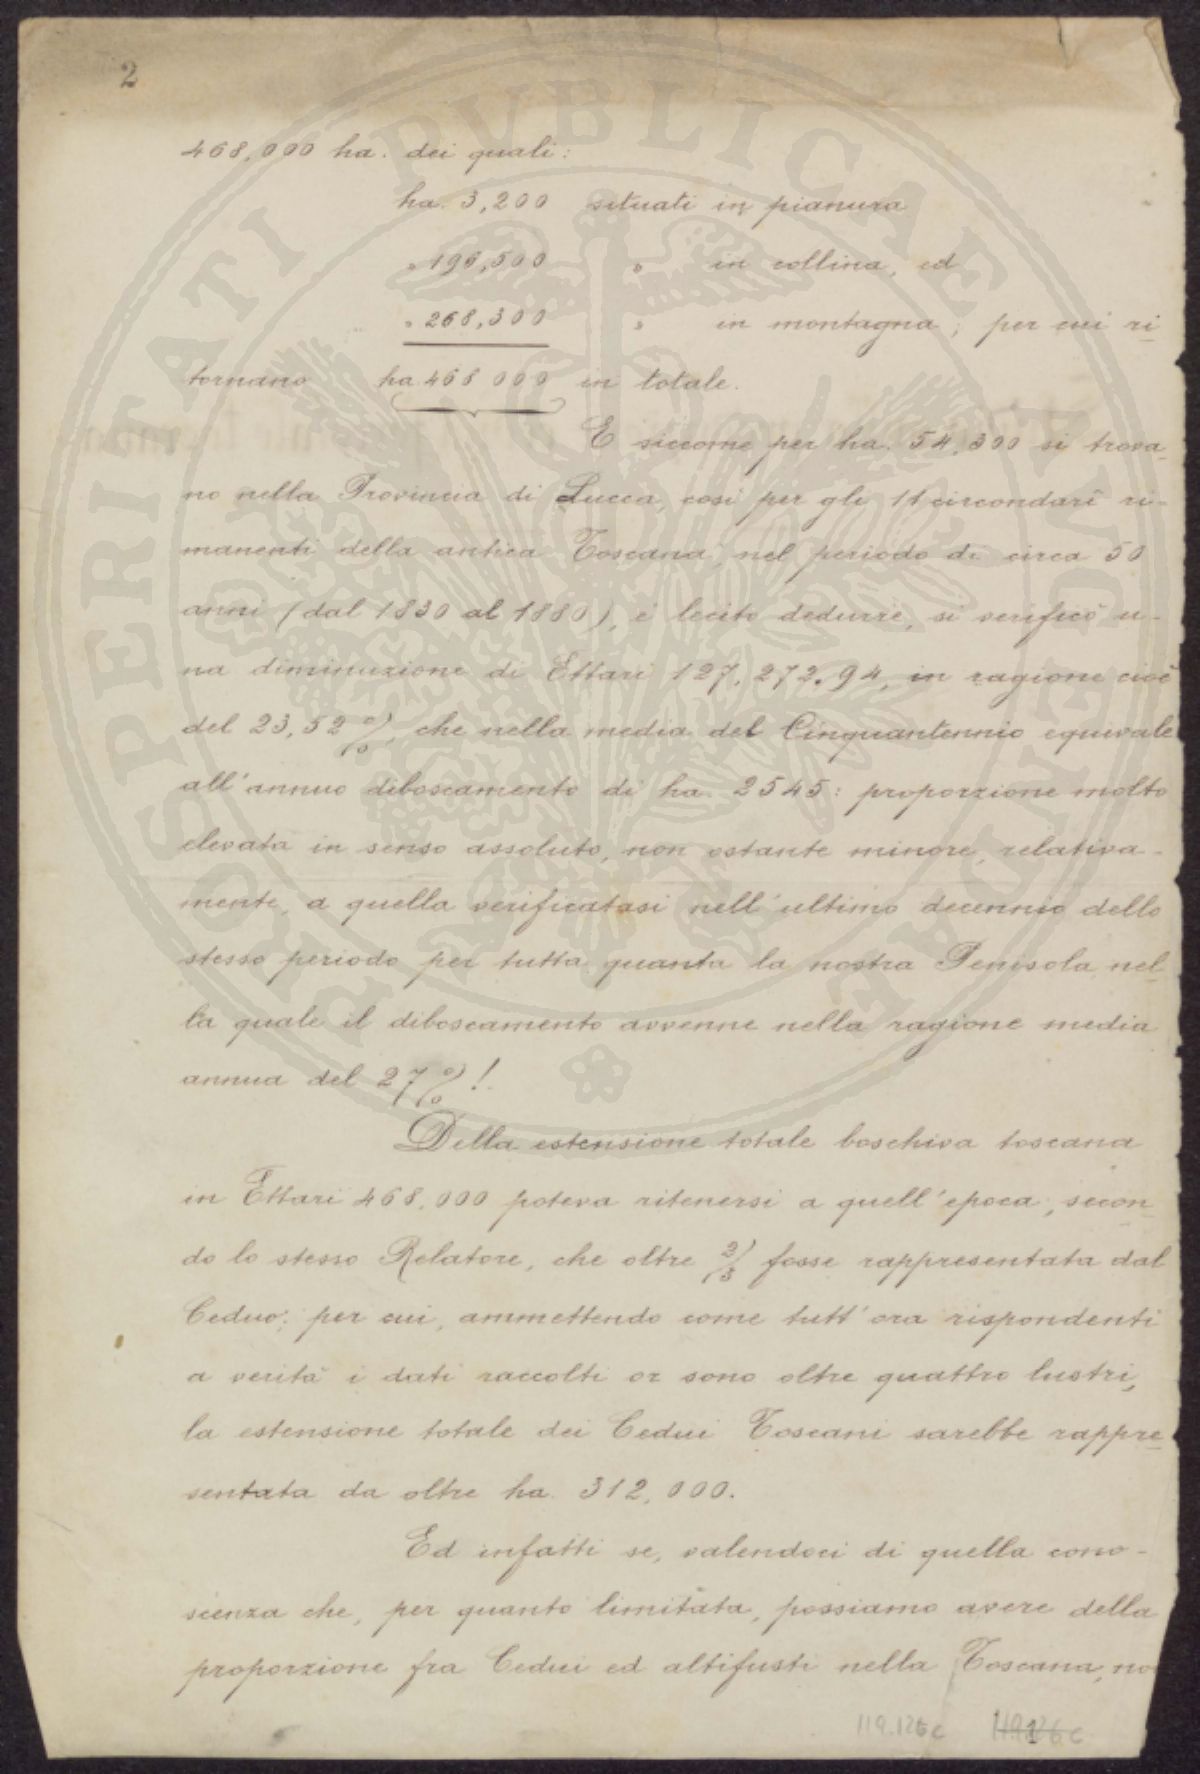 2
468,000 ha. dei quali:
ha. 3,200 situati in pianura
" 196,500 " in collina, ed
" 268,300 " in montagna; per cui ri-
tornano ha. 468 000 in totale.
E siccome per ha. 54,300 si trova-
no nella Provincia di Lucca, così per gli 11 circondari ri-
manenti della antica Toscana, nel periodo di circa 50
anni (dal 1830 al 1880), è lecito dedurre, si verificò u-
na diminuzione di Ettari 127,272.94, in ragione cioè
del 23,52 %, che nella media del Cinquantennio equivale
all'annuo diboscamento di ha. 2545: proporzione molto
elevata in senso assoluto, non ostante minore, relativa-
mente, a quella verificatasi nell'ultimo decennio dello
stesso periodo per tutta quanta la nostra Penisola, nel-
la quale il diboscamento avvenne nella ragione media
annua del 27 %!
Della estensione totale boschiva toscana
in Ettari 468.000 poteva ritenersi a quell'epoca, secon-
do lo stesso Relatore, che oltre 2/3 fosse rappresentata dal
Ceduo; per cui, ammettendo come tutt'ora rispondenti
a verità i dati raccolti or sono oltre quattro lustri,
la estensione totale dei Cedui Toscani sarebbe rappre-
sentata da oltre ha. 312,000.
Ed infatti se, valendoci di quella cono-
scenza che, per quanto limitata, possiamo avere della
proporzione fra Cedui ed altifusti nella Toscana, no
119.126c
PROSPERITATI PVBLICAE AVGENDAE